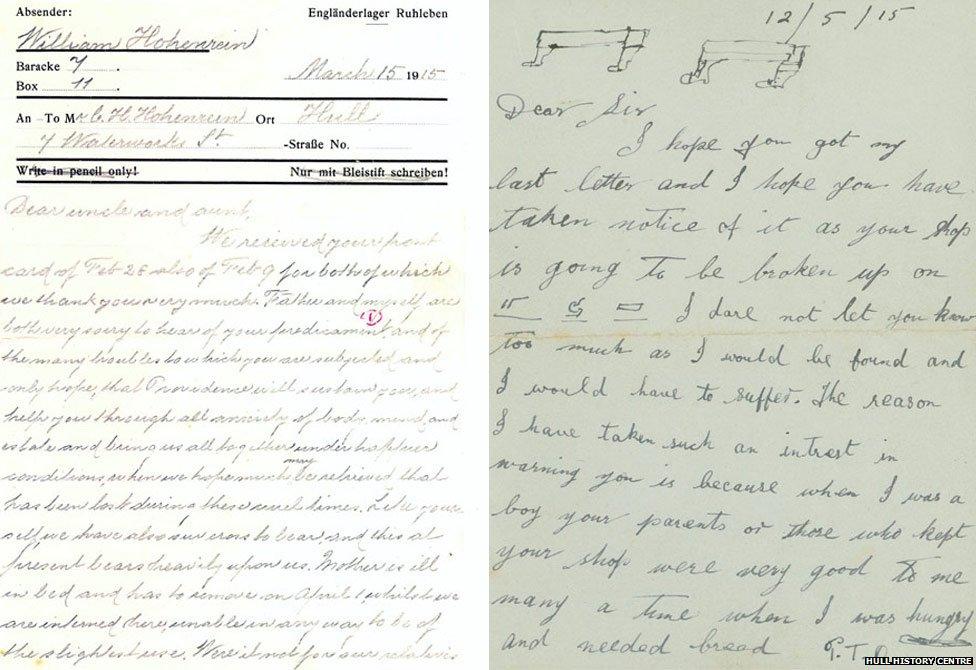 Absender:
Engländerlager Ruhleben
William Hohenrein
Baracke 7
Box 11
March 15 1915
An - To Mr C. H. Hohenrein Ort Hull
7 Waterworks St. -Straße No.
Write in pencil only! Nur mit Bleistift schreiben!
Dear uncle and aunt,
We received your post
card of Feb 28 also of Feb 9 for both of which
we thank you very much. Father and myself are
both very sorry to hear of your predicament and of
the many troubles to which you are subjected and
only hope, that Providence will sustain you, and
help you through all anxiety of body, mind and
estate and bring us all together under happier
conditions, when we hope much may be retrieved that
has been lost during these cruel times. Like your
self, we have also our cross to bear, and this at
present bears heavily upon us. Mother is ill
in bed and has to remove on April 1, whilst we
are interned here, unable in any way to be of
the slightest use. Were it not for our relatives
12/5/15
Dear Sir
I hope you got my
last letter and I hope you have
taken notice of it as your shop
is going to be broken up on
I dare not let you know
too much as I would be found and
I would have to suffer. The reason
I have taken such an intrest in
warning you is because when I was a
boy your parents or those who kept
your shop were very good to me
many a time when I was hungry
and needed bread P.T.O
HULL HISTORY/CENTRE